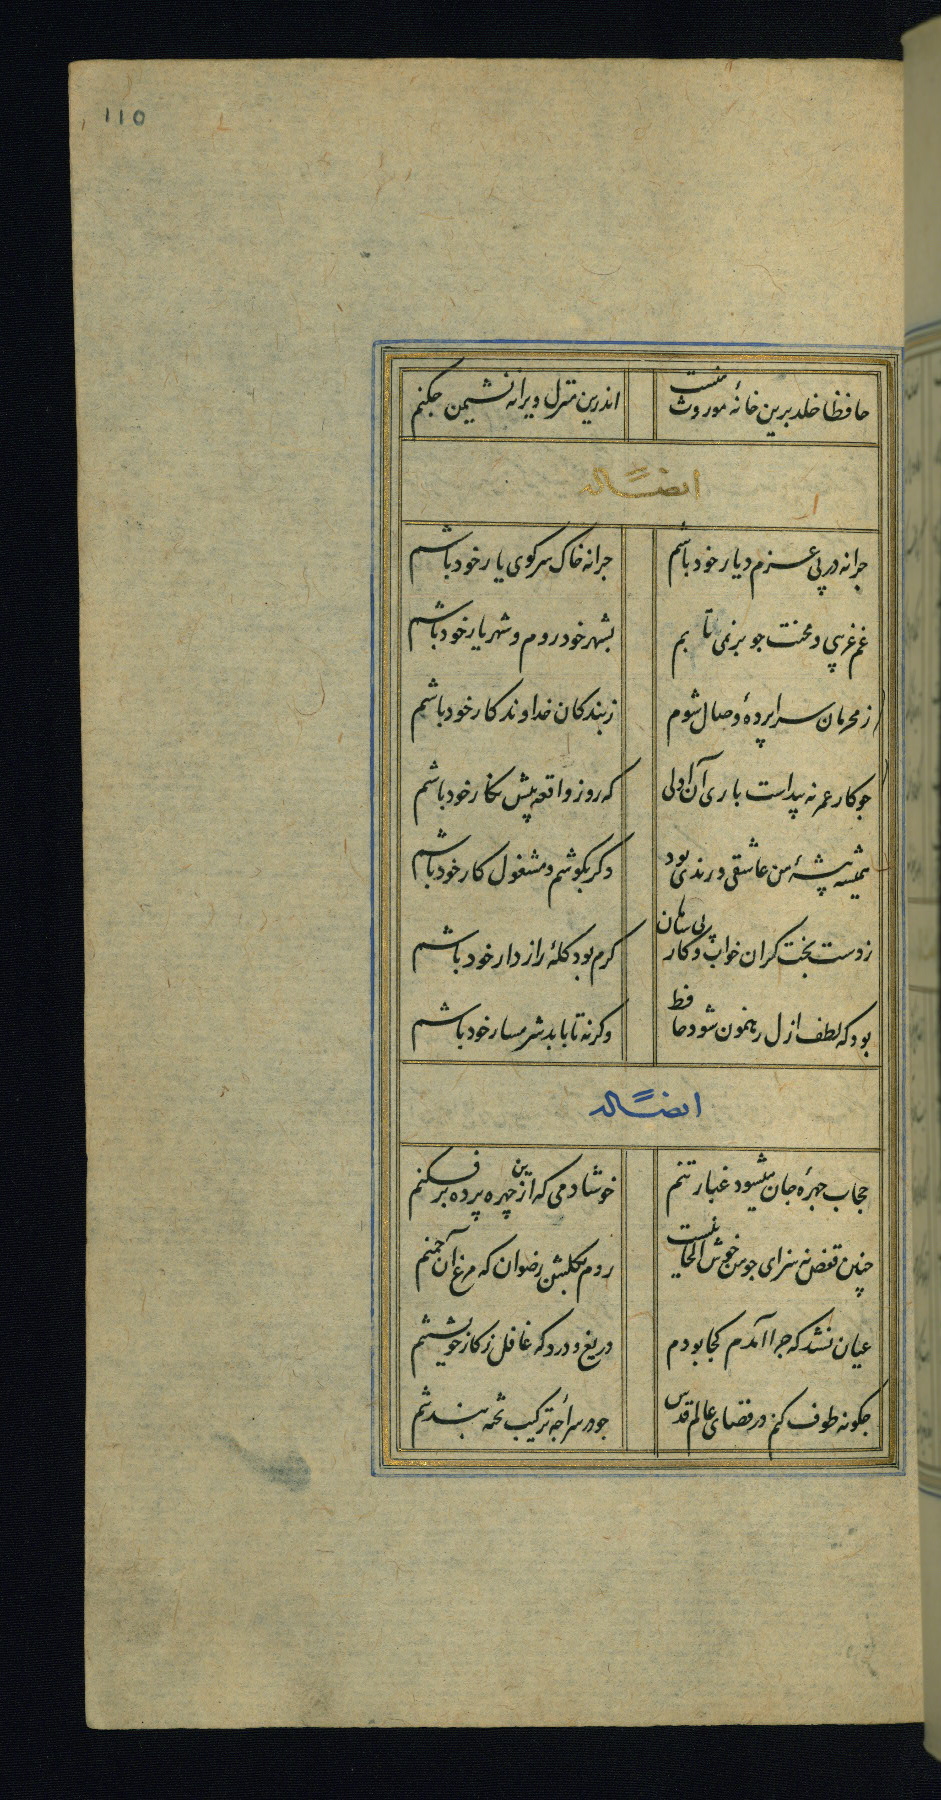 ١١٥
حافظا خلد برین خانهٔ موروث منست اندرین منزل ویرانه نشیمن جکنم
ایضاً له
جرا نه در پی عزم دیار خود باشم جرا نه خاک سر کوی یار خود باشم
غم غریبی و محنت جو بر نمی تابم بشهر خود روم و شهریار خود باشم
ز محرمان سراپردهٔ وصال شوم ز بندکان خداوندکار خود باشم
جو کار عمر نه پیداست باری آن اولی که روز واقعه پیش نکار خود باشم
همیشه پیشهٔ من عاشقی و رندی بود دکر بکوشم و مشغول کار خود باشم
ز دست بخت کران خواب و کار بی سامان کرم بود کلهٔ رازدار خود باشم
بود که لطف ازل رهنمون شود حافظ وکرنه تا بابد شرمسار خود باشم
ایضاً له
حجاب جهرهٔ جان میشود غبار تنم خوشا دمی که ازین چهره پرده برفکنم
چنین قفص نه سزای جو من خوش الحانیست روم بکلشن رضوان که مرغ آن جمنم
عیان نشد که جرا آمدم کجا بودم دریغ و درد که غافل ز کار خویشتنم
جکونه طوف کنم در فضای عالم قدس جو در سراجهٔ ترکیب تخته بند تنم